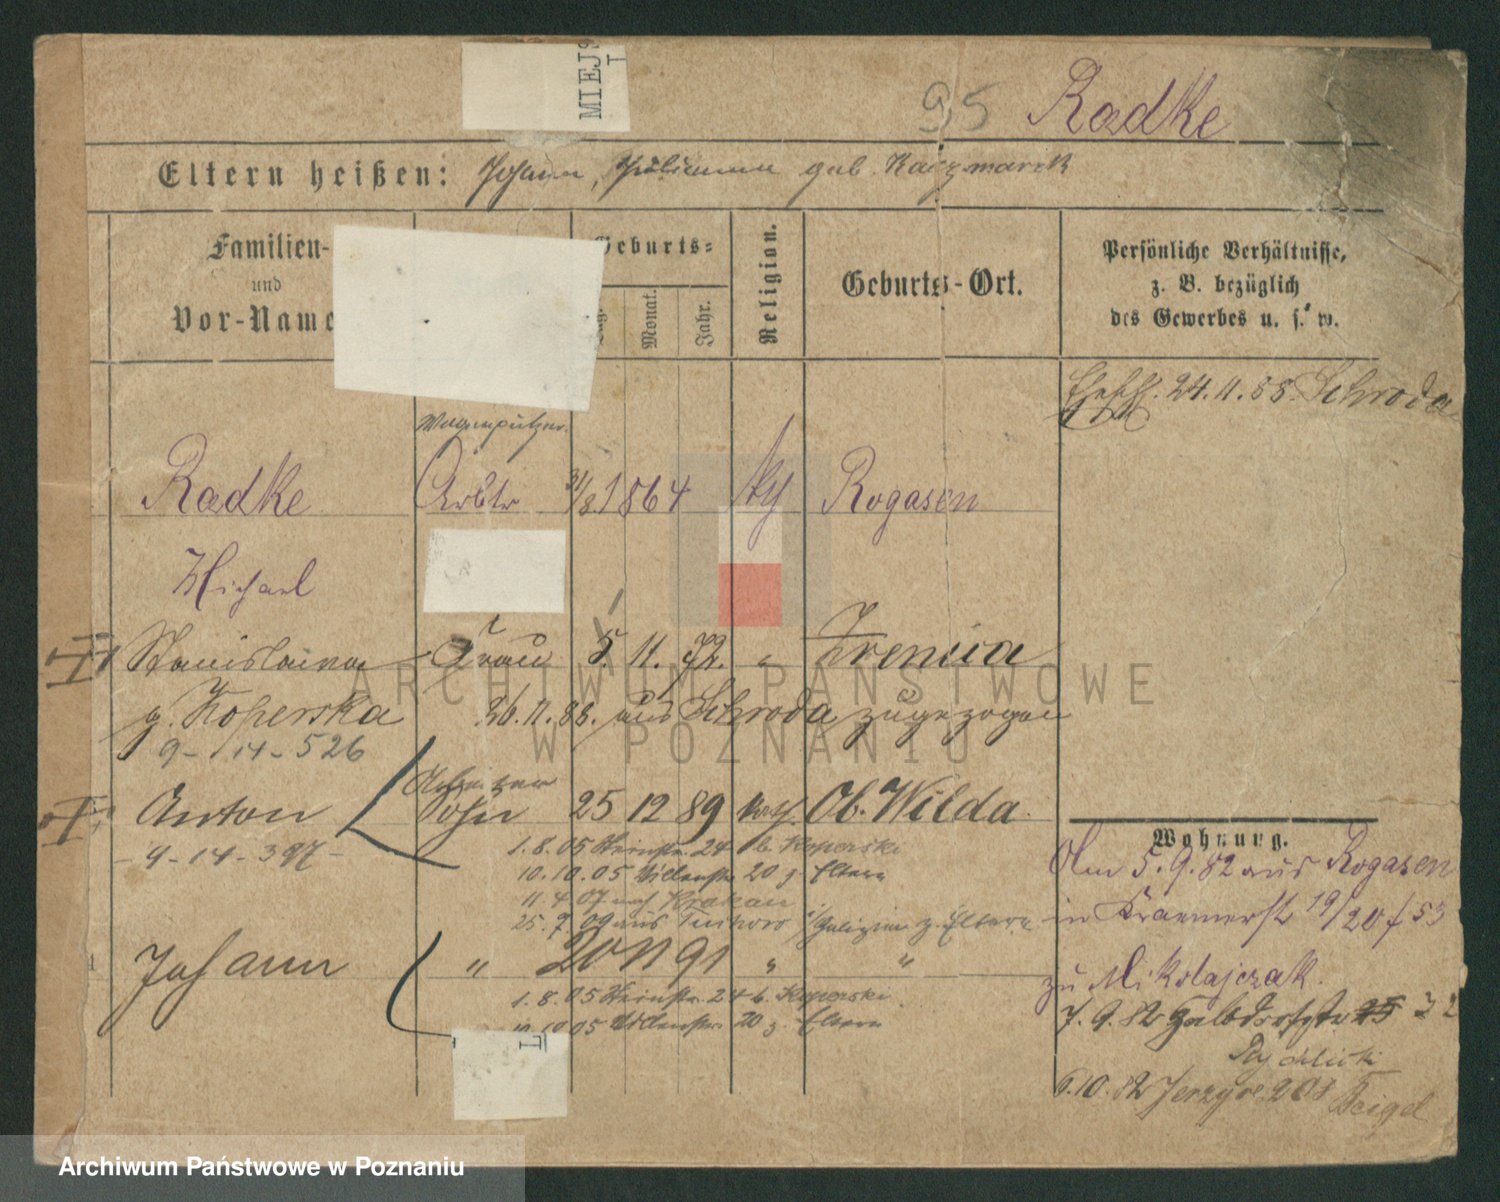 MIEJS
T
95 Radke
Eltern heißen: Johann, Julianna geb. Kaczmarek
Familien-
und
Vor-Name
Geburts-
Monat.
Jahr.
Religion.
Geburts-Ort.
Persönliche Verhältnisse,
z. B. bezüglich
des Gewerbes u. s. w.
24.11.88. Schroda
Wagenputzer.
Radke Arbtr 31/8. 1864 kth Rogasen
Michael
Stanislawa Frau 5. 11. 72. " Zrenica
g. Koperska 26.11.88. aus Schroda zugezogen
9-14-526
Anton Sohn 25 12 89 kath. Ob. Wilda.
-9-14-397-
1.8.05 24 b. Koperski
10.10.05 Villenstr 20 z. Eltern
11.4.07 nach Krakau
25.9.09 aus Galizien z. Eltern
Johann " 20 11 91 " "
1.8.05 24 b. Koperski
10.10.05 Villenstr. 20 z. Eltern
L
Wohnung.
5.9.82 aus Rogasen
in Kraemerstr 19/20 f 53
zu Mikolajczak.
7.9.82 Halbdorfstr 22
Rychlicki
6.10.82 Jerzyce 208 Feigel
ARCHIWUM PAŃSTWOWE
W POZNANIU
Archiwum Państwowe w Poznaniu